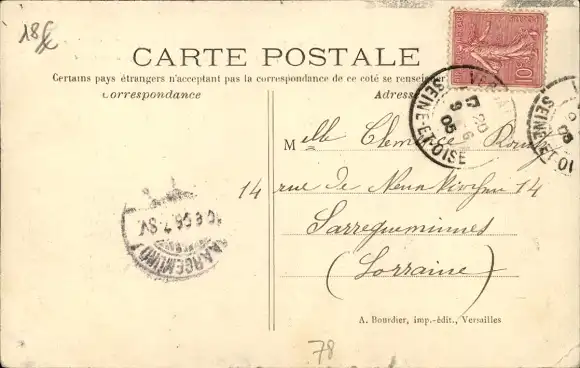 18f
CARTE POSTALE
Certains pays étrangers n'acceptant pas la correspondance de ce coté se renseigner
Correspondance
Adresse
10
VERSAI
17 20
9 6
05
SEINE-ET-OISE
SEINE ET O
Melle Clemence
14 rue de 14
Sarreguemines
(Lorraine)
SAARGEMÜND
A. Bourdier, imp.-édit., Versailles
78